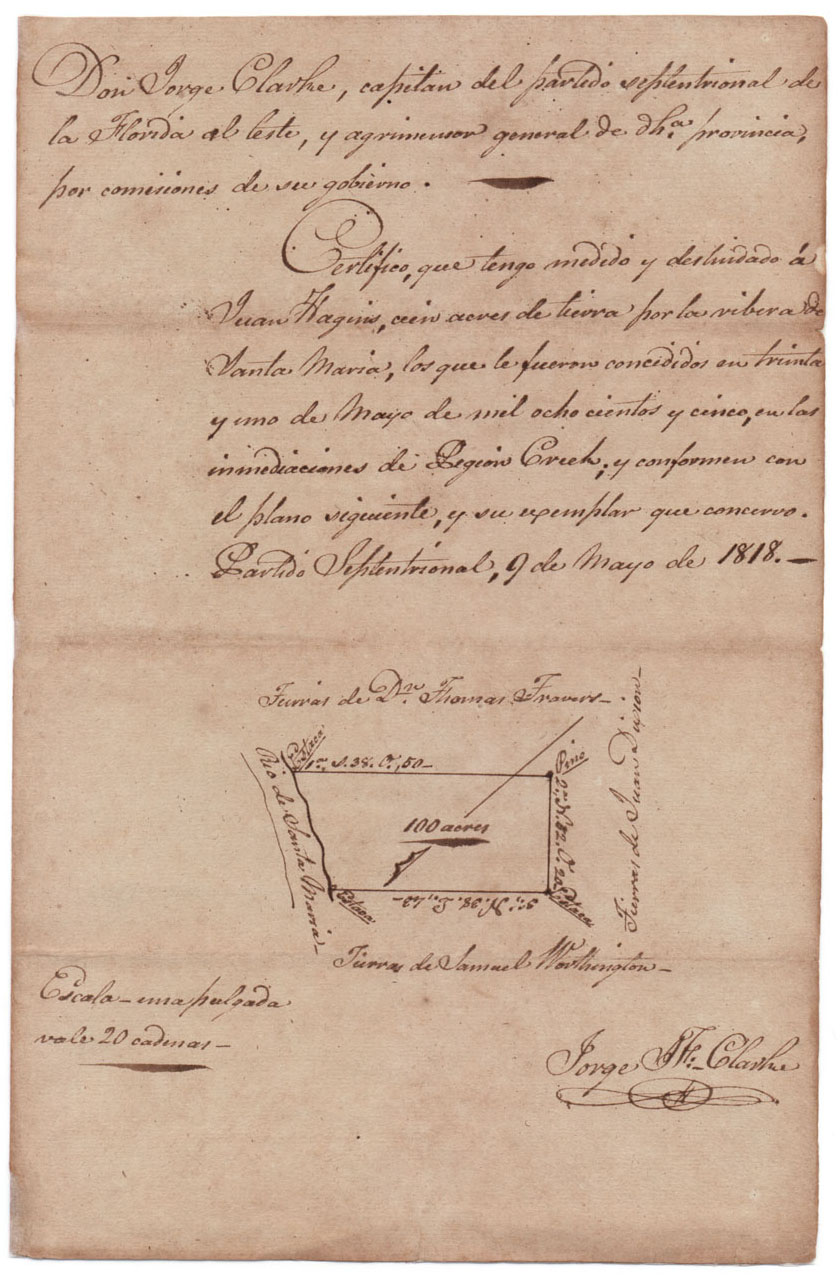 Don Jorge Clarke, capitan del partido septentrional de
la Florida al leste, y agrimensor general de dha. provincia,
por comisiones de su gobierno.
Certifico, que tengo medido y deslindado á
Juan Hagins, cien acres de tierra por la ribera de
Santa Maria, los que le fueron concididos en treinta
y uno de Mayo de mil ochocientos y cinco, en las
inmediaciones de Pegion Creek; y conformen con
el plano siguiente, y su exemplar que concervo.
Partido Septentrional, 9 de Mayo de 1818.—
Tierras de Dn. Thomas Travers—
Estaca
1a. S. 38. O., 50—
Pino
Rio de Santa Maria—
2a. N. 82. O. 20
Tierras de Juan Dixon—
100 acres
Estaca
3a. N. 38. E.
Estaca
Tierras de Samuel Worthington—
Escala—una pulgada
vale 20 cadenas—
Jorge J. F. Clarke